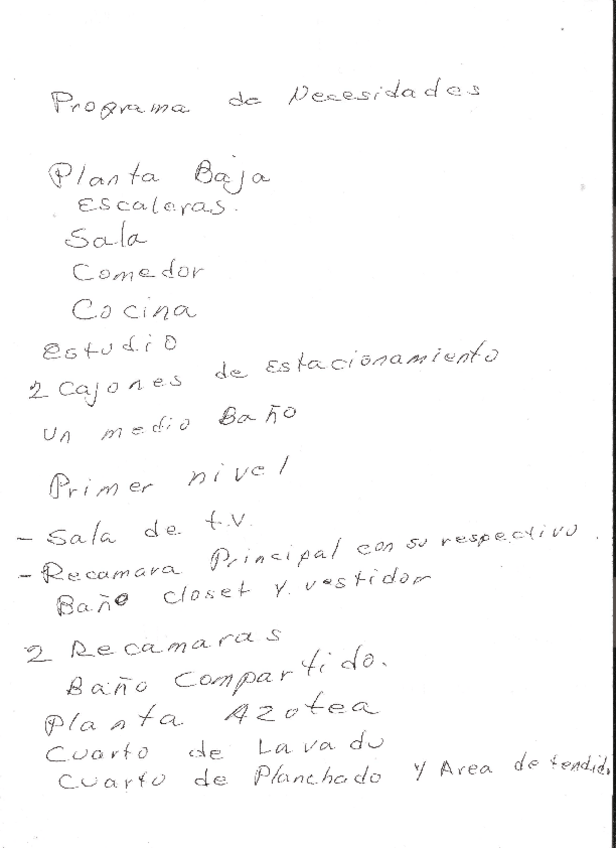 Programa de Necesidades
Planta Baja
Escaleras.
Sala
Comedor
Cocina
estudio
2 Cajones de Estacionamiento
un medio Baño
Primer nivel
- Sala de t.v.
- Recamara Principal con su respectivo.
Baño closet y vestidor
2 Recamaras
Baño Compartido.
Planta Azotea
Cuarto de Lavado
Cuarto de Planchado y Area de tendid.